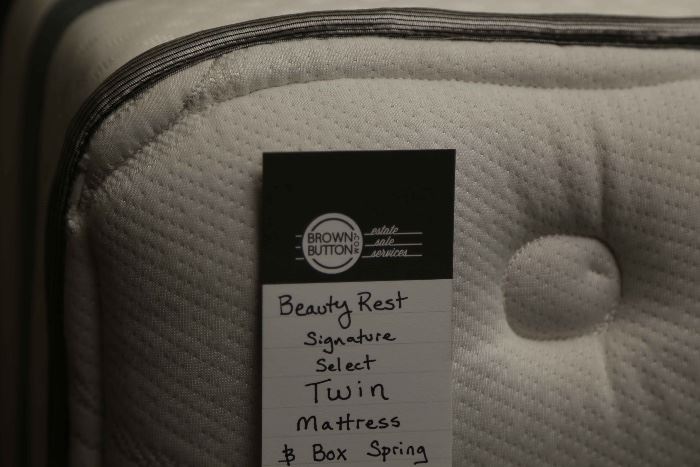 BROWN
BUTTON
.COM
estate
sale
services
Beauty Rest
Signature
Select
Twin
Mattress
& Box Spring